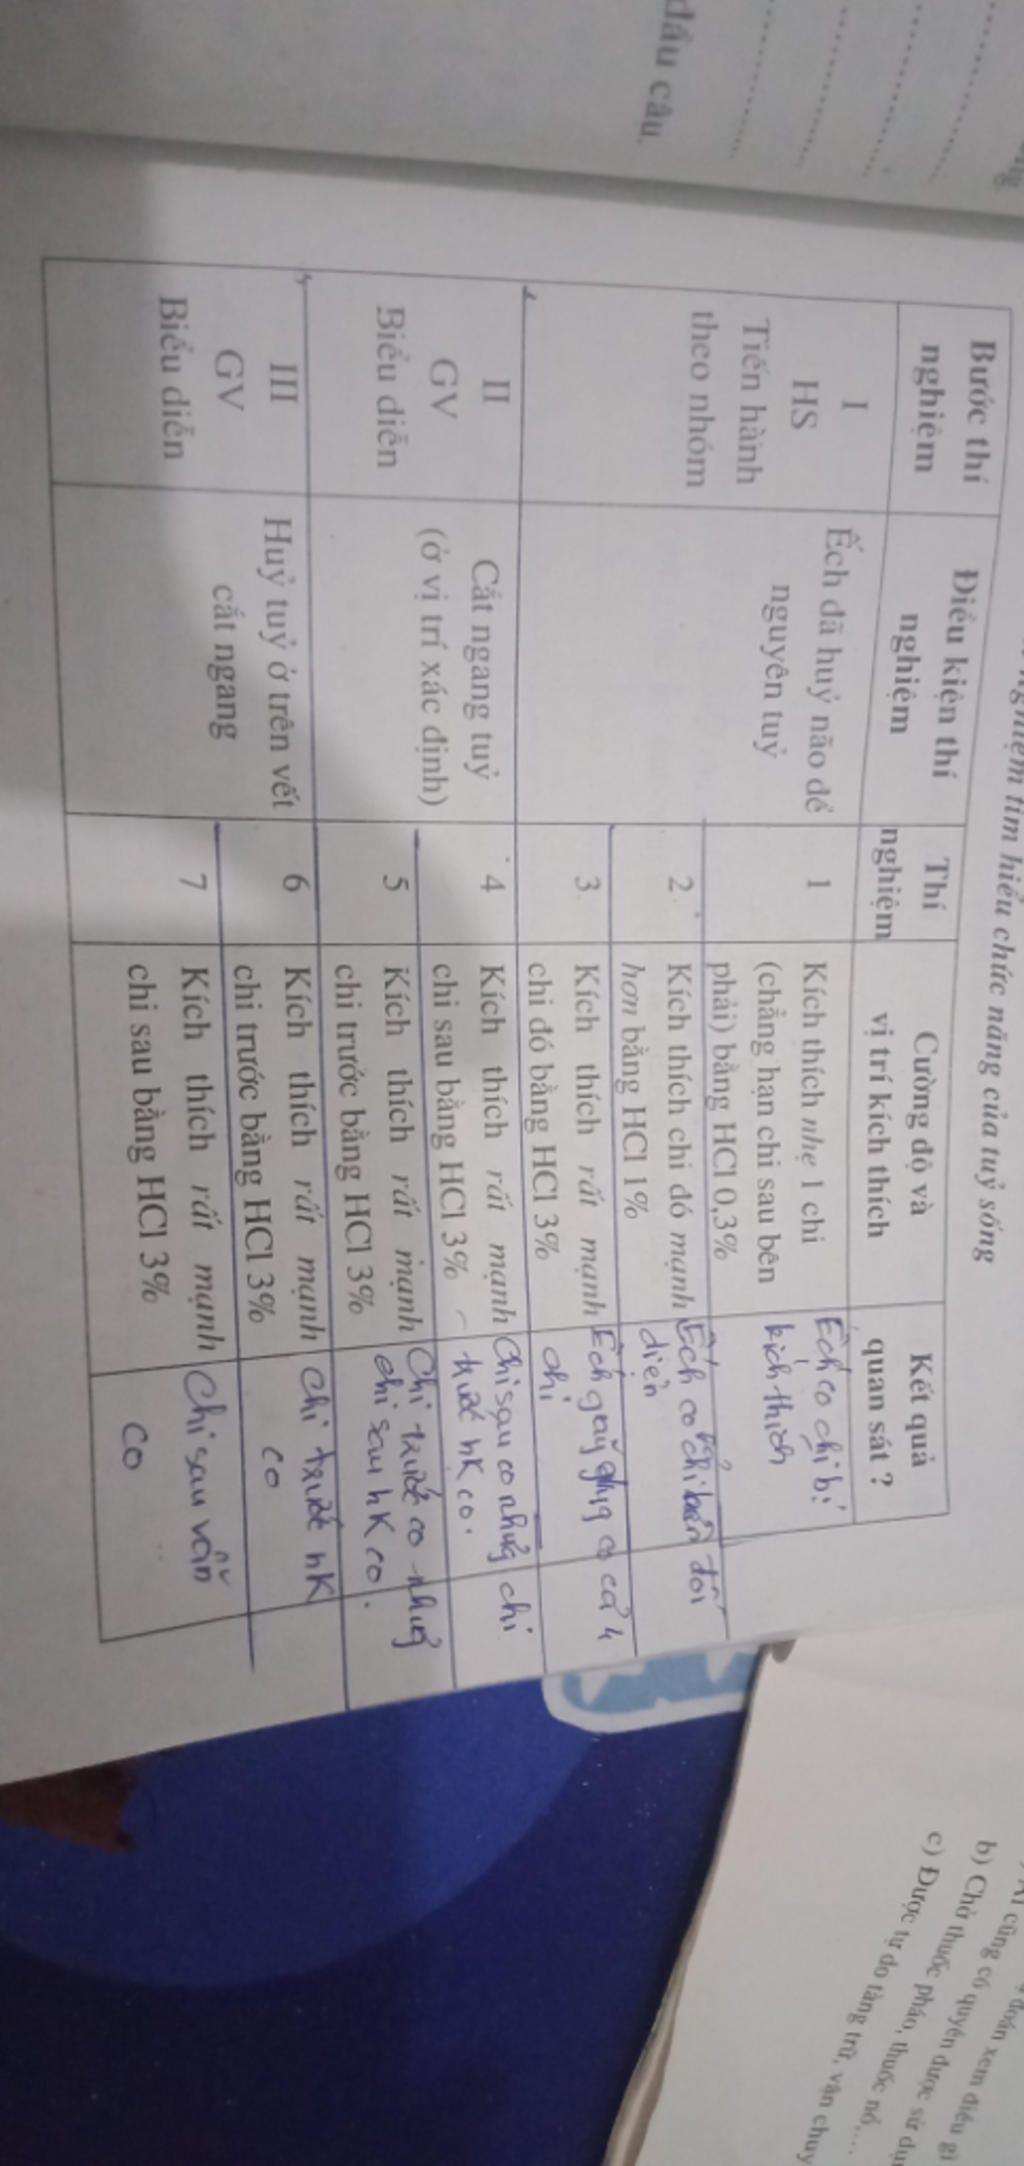 dấu câu.
nghiệm tìm hiểu chức năng của tuỷ sống
Bước thí
nghiệm
Điều kiện thí
nghiệm
Thí
nghiệm
Cường độ và
vị trí kích thích
Kết quả
quan sát ?
I
HS
Tiến hành
theo nhóm
Ếch đã huỷ não để
nguyên tuỷ
1
Kích thích nhẹ 1 chi
(chẳng hạn chi sau bên
phải) bằng HCl 0,3%
Ếch co chi bị
kích thích
2.
Kích thích chi đó mạnh
hơn bằng HCl 1%
Ếch co cả chi bên đối
diện
3.
Kích thích rất mạnh
chi đó bằng HCl 3%
Ếch giãy giụa co cả 4
chi
II
GV
Biểu diễn
Cắt ngang tuỷ
(ở vị trí xác định)
4
Kích thích rất mạnh
chi sau bằng HCl 3%
Chi sau co nhưng chi
trước hK co.
5
Kích thích rất mạnh
chi trước bằng HCl 3%
Chi trước co nhưng
chi sau hK co.
III
GV
Biểu diễn
Huỷ tuỷ ở trên vết
cắt ngang
6
Kích thích rất mạnh
chi trước bằng HCl 3%
Chi trước hK
co
7
Kích thích rất mạnh
chi sau bằng HCl 3%
Chi sau vẫn
co
đoán xem điều gì
cũng có quyền được sử dụ
b) Chở thuốc pháo, thuốc nổ,...
c) Được tự do tàng trữ, vận chuy